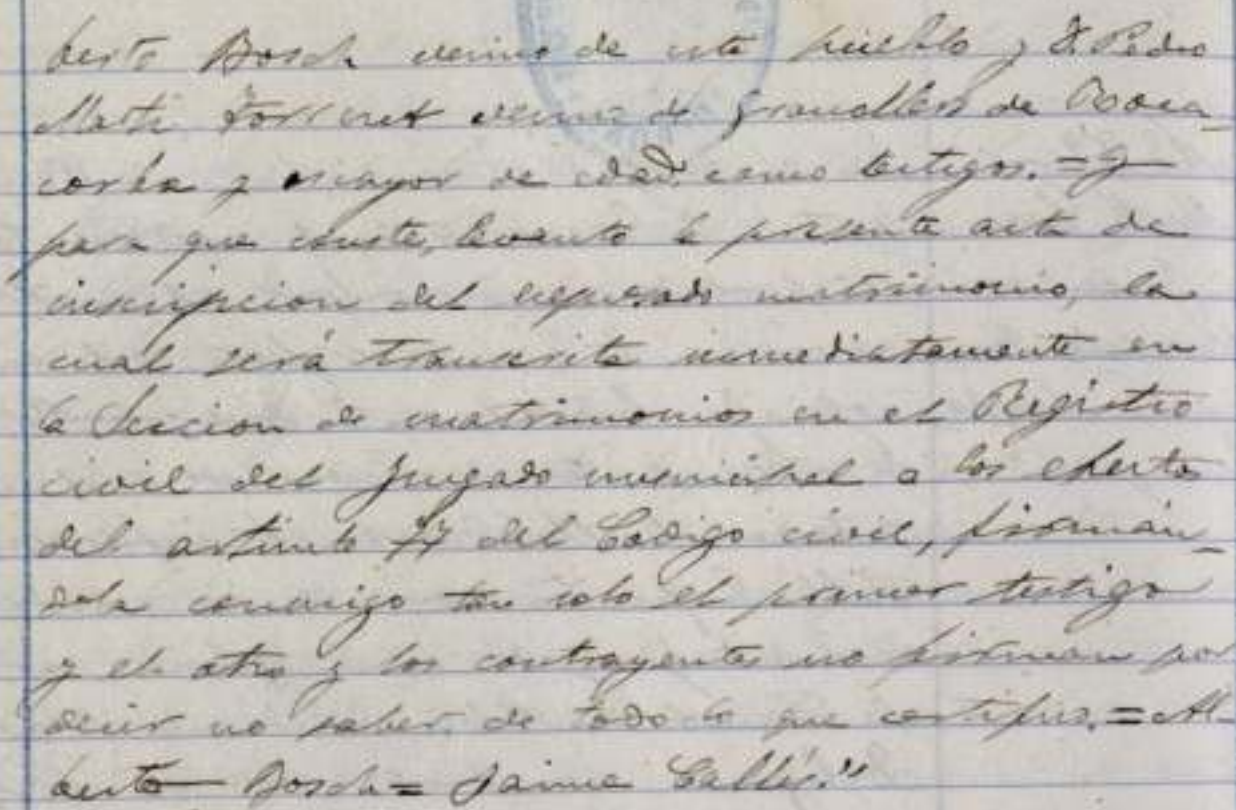 berto Bosch vecino de este pueblo y D. Pedro
Martí Torrent vecino de Granollers de Roca-
corba y mayor de edad como testigos. = Y
para que conste, levanto la presente acta de
inscripcion del expresado matrimonio, la
cual será transcrita inmediatamente en
la Seccion de matrimonios en el Registro
civil del Juzgado municipal a los efectos
del articulo 77 del Codigo civil, firmán-
dola conmigo tan solo el primer testigo
y el otro y los contrayentes no firman por
decir no saber, de todo lo que certifico. = Al-
berto Bosch = Jaime Callís."